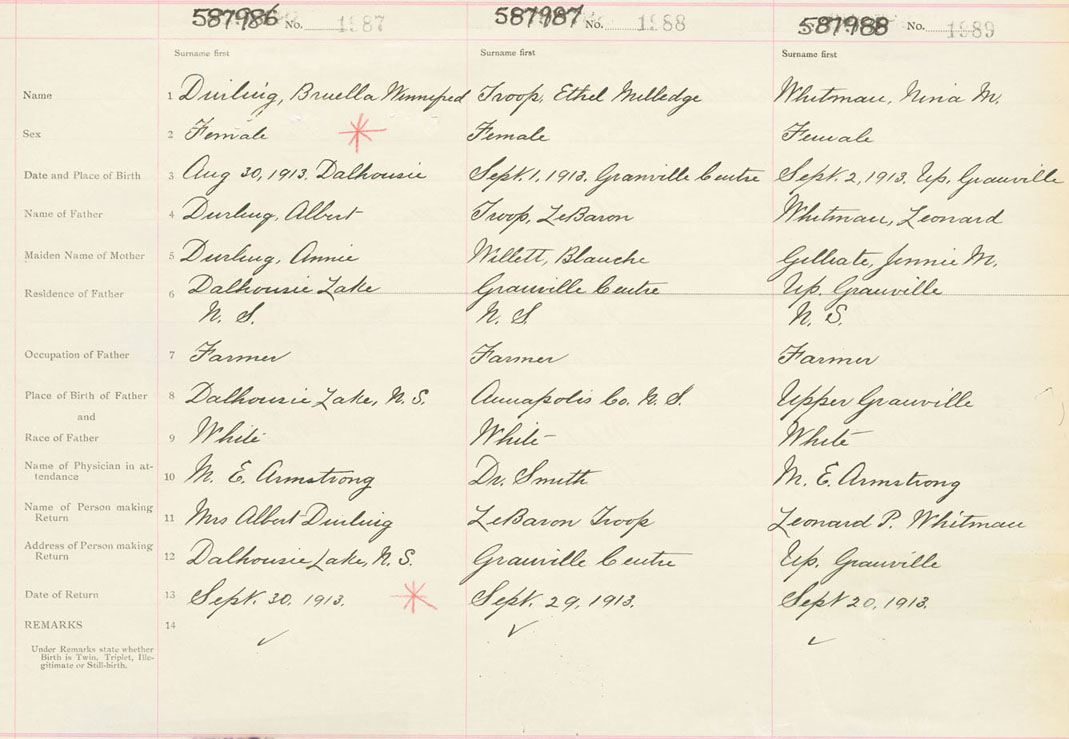 587986 No. 1987 587987 No. 1988 587988 No. 1989
Surname first Surname first Surname first
Name 1 Durling, Bruella Winnifred Troop, Ethel Milledge Whitman, Nina M.
Sex 2 Female Female Female
Date and Place of Birth 3 Aug 30, 1913. Dalhousie Sept. 1, 1913. Granville Centre Sept. 2, 1913. Up. Granville
Name of Father 4 Durling, Albert Troop, LeBaron Whitman, Leonard
Maiden Name of Mother 5 Durling, Annie Willett, Blanche Gilliate, Jennie M.
Residence of Father 6 Dalhousie Lake Granville Centre Up. Granville
N. S. N. S. N. S.
Occupation of Father 7 Farmer Farmer Farmer
Place of Birth of Father 8 Dalhousie Lake, N. S. Annapolis Co. N. S. Upper Granville
and
Race of Father 9 White White White
Name of Physician in at-
tendance 10 M. E. Armstrong Dr. Smith M. E. Armstrong
Name of Person making
Return 11 Mrs Albert Durling LeBaron Troop Leonard P. Whitman
Address of Person making
Return 12 Dalhousie Lake, N. S. Granville Centre Up. Granville
Date of Return 13 Sept. 30, 1913. Sept. 29, 1913. Sept 20, 1913.
REMARKS 14
Under Remarks state whether
Birth is Twin, Triplet, Ille-
gitimate or Still-birth.